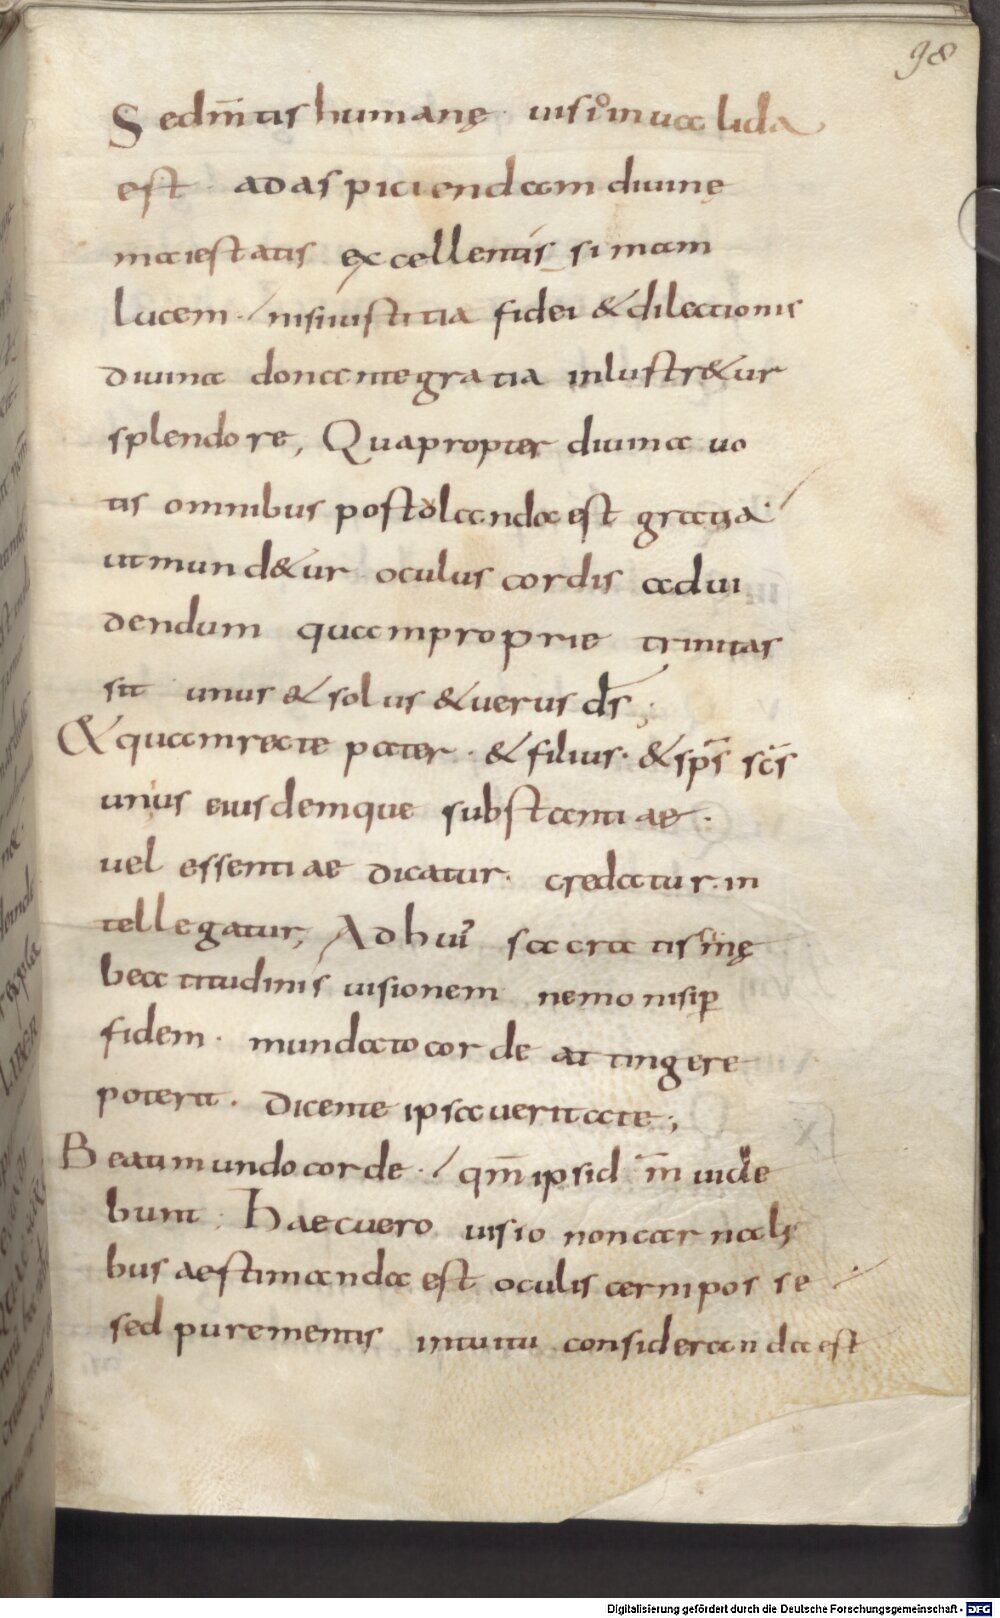 98
Sed m̄tis humanę uisio inualida
est adaspiciendam diuinę
maiestatis excellentissimam
lucem nisi iustitia fidei & dilectionis
diuina donante gratia inlustr&ur
splendore, Quapropter diuina uo
tis omnibus postolanda est gratia
ut mund&ur oculus cordis ad ui
dendum quam proprie trinitas
sit unus & solus & uerus d̄s;
& quam recte pater. & filius. & sp̄s sc̄s
unius eiusdemque substantiae.
uel essentiae dicatur. credatur. in
tellegatur, Ad hui' sacratismę
beatitudinis uisionem nemo nisi ꝑ
fidem. mundato corde attingere
poterit. dicente ipsa ueritate;
Beati mundo corde. qm̄ ipsi d m̄ uide
bunt. Haec uero uisio non carnali
bus aestimanda est oculis cerni posse
sed pure mentis intuitu consideranda est
Digitalisierung gefördert durch die Deutsche Forschungsgemeinschaft - DFG